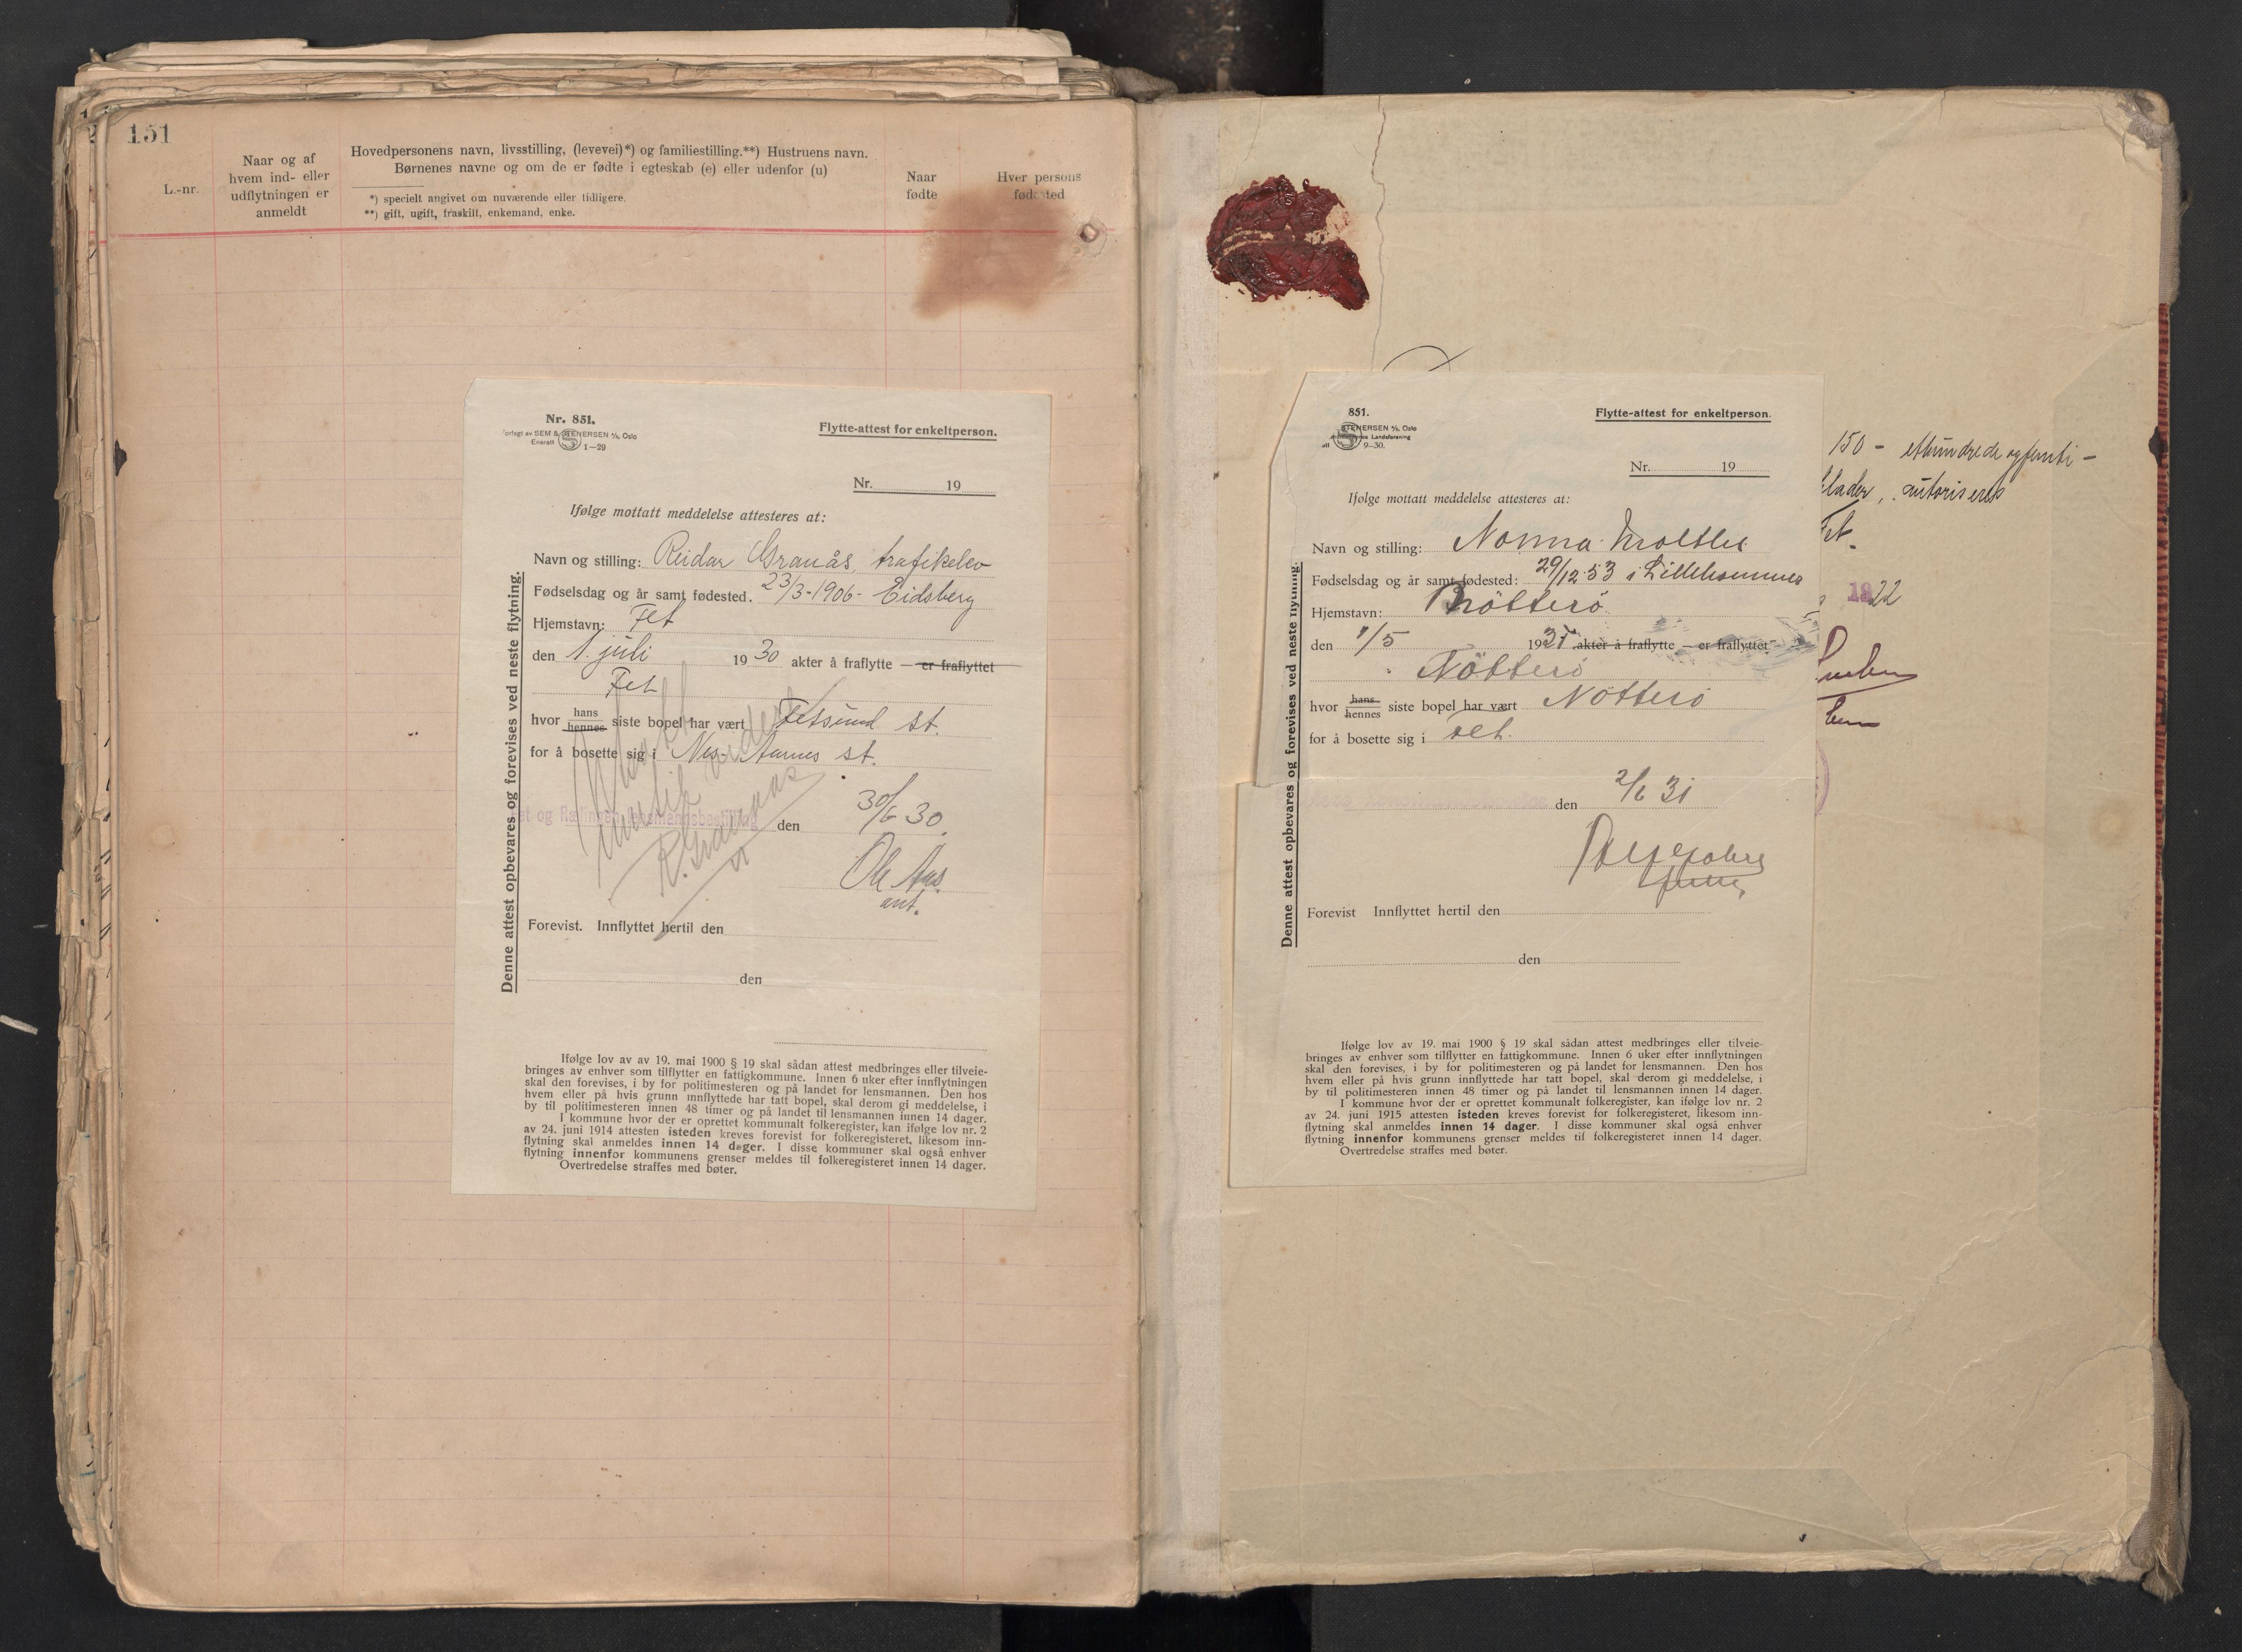 151
L.-nr.
Naar og af
hvem ind- eller
udflytningen er
anmeldt
Hovedpersonens navn, livsstilling, (levevei)*) og familiestilling.**) Hustruens navn.
Børnenes navne og om de er fødte i egteskab (e) eller udenfor (u)
*) specielt angivet om nuværende eller tidligere.
**) gift, ugift, fraskilt, enkemand, enke.
Naar
fødte
Hver persons
fødested
Nr. 851.
Forlagt av SEM & STENERSEN A/S, Oslo
Enerett 1—29
Flytte-attest for enkeltperson.
Nr. 19
Ifølge mottatt meddelelse attesteres at:
Navn og stilling: Reidar Granås, trafikelev
Fødselsdag og år samt fødested. 23/3-1906- Eidsberg
Hjemstavn: Fet
den 1. juli 1930 akter å fraflytte — er fraflyttet
Fet
hvor hans hennes siste bopel har vært Fetsund st.
for å bosette sig i Nes. Aarnes st.
Fet og Rælingen lensmandsbestilling den 30/6 30.
Ole Aas.
ant.
R. Granaas
Forevist. Innflyttet hertil den
den
Denne attest opbevares og forevises ved neste flytning.
Ifølge lov av av 19. mai 1900 § 19 skal sådan attest medbringes eller tilveie-
bringes av enhver som tilflytter en fattigkommune. Innen 6 uker efter innflytningen
skal den forevises, i by for politimesteren og på landet for lensmannen. Den hos
hvem eller på hvis grunn innflyttede har tatt bopel, skal derom gi meddelelse, i
by til politimesteren innen 48 timer og på landet til lensmannen innen 14 dager.
I kommune hvor der er oprettet kommunalt folkeregister, kan ifølge lov nr. 2
av 24. juni 1914 attesten isteden kreves forevist for folkeregisteret, likesom inn-
flytning skal anmeldes innen 14 dager. I disse kommuner skal også enhver
flytning innenfor kommunens grenser meldes til folkeregisteret innen 14 dager.
Overtredelse straffes med bøter.
851.
STENERSEN A/S, Oslo
Landsforening
9-30.
Flytte-attest for enkeltperson.
Nr. 19
Ifølge mottatt meddelelse attesteres at:
Navn og stilling: Nonna
Fødselsdag og år samt fødested: 29/12 53 i Lillehammer
Hjemstavn: Nötterö
den 1/5 1931 akter å fraflytte — er fraflyttet
Nötterö
hvor hans hennes siste bopel har vært Nötterö
for å bosette sig i Fet.
den 2/6 31
Forevist Innflyttet hertil den
den
Denne attest opbevares og forevises ved neste flytning.
Ifølge lov av 19. mai 1900 § 19 skal sådan attest medbringes eller tilveie-
bringes av enhver som tilflytter en fattigkommune. Innen 6 uker efter innflytningen
skal den forevises, i by for politimesteren og på landet for lensmannen. Den hos
hvem eller på hvis grunn innflyttede har tatt bopel, skal derom gi meddelelse, i
by til politimesteren innen 48 timer og på landet til lensmannen innen 14 dager.
I kommune hvor der er oprettet kommunalt folkeregister, kan ifølge lov nr. 2
av 24. juni 1915 attesten isteden kreves forevist for folkeregisteret, likesom inn-
flytning skal anmeldes innen 14 dager. I disse kommuner skal også enhver
flytning innenfor kommunens grenser meldes til folkeregisteret innen 14 dager.
Overtredelse straffes med bøter.
150 - ethundrede og femti -
blader, autoriseres
Fet.
1922